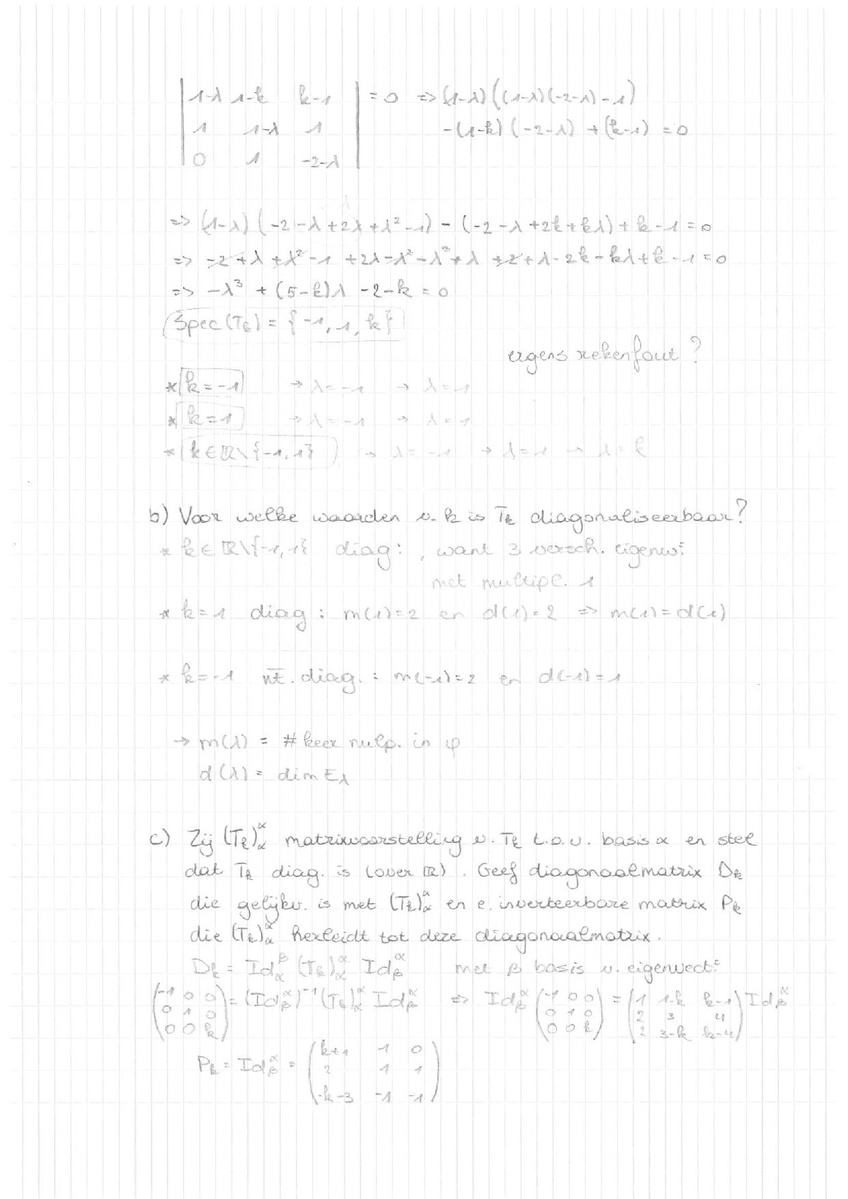 | 1-λ 1-k k-1 | = 0 => (1-λ)((1-λ)(-2-λ)-1)
| 1 1-λ 1 | -(1-k)(-2-λ) + (k-1) = 0
| 0 1 -2-λ |
=> (1-λ)(-2-λ+2λ+λ²-1) - (-2-λ+2k+kλ) + k-1 = 0
=> -2+λ+λ²-1+2λ-λ²-λ³+λ+2+λ-2k-kλ+k-1=0
=> -λ³ + (5-k)λ -2-k = 0
Spec(Tk) = {-1, 1, k}
ergens rekenfout?
* k=-1 → λ=-1 → λ=1
* k=1 → λ=-1 → λ=1
* k∈ℝ\{-1,1} → λ=-1 → λ=1 → λ=k
b) Voor welke waarden v. k is Tk diagonaliseerbaar?
* k∈ℝ\{-1,1} diag: , want 3 versch. eigenw:
met multipl. 1
* k=1 diag : m(1)=2 en d(1)=2 => m(1)=d(1)
* k=-1 nt. diag. : m(-1)=2 en d(-1)=1
→ m(λ) = # keer nulp. in φ
d(λ) = dim Eλ
c) Zij (Tk)αα matrixvoorstelling v. Tk t.o.v. basis α en stel
dat Tk diag. is (over ℝ). Geef diagonaalmatrix Dk
die gelijkv. is met (Tk)αα en e. inverteerbare matrix Pk
die (Tk)αα herleidt tot deze diagonaalmatrix.
Dk = Idαβ (Tk)αα Idβα met β basis v. eigenvect:
(-1 0 0) = (Idβα)⁻¹ (Tk)αα Idβα => Idβα (-1 0 0) = (1 1-k k-1) Idβα
(0 1 0) (0 1 0) (2 3 4)
(0 0 k) (0 0 k) (2 3-k k-4)
Pk = Idβα = (k+1 1 0)
(2 1 1)
(-k-3 -1 -1)